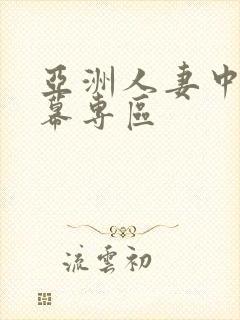 亞洲人妻中
幕專區
流雲初